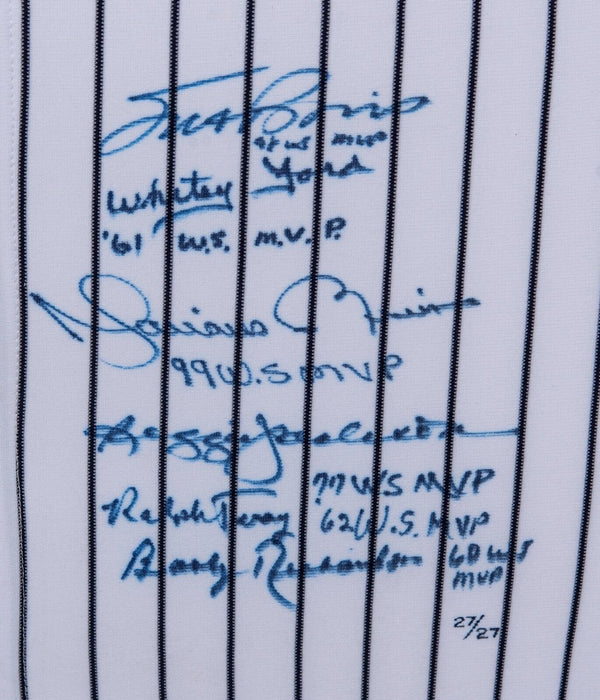 Scott Brosius
98 WS MVP
Whitey Ford
'61 W.S. M.V.P.
Mariano Rivera
99 W.S MVP
Reggie Jackson
'77 WS MVP
Ralph Terry '62 W.S. MVP
Bobby Richardson 60 WS
MVP
27/27